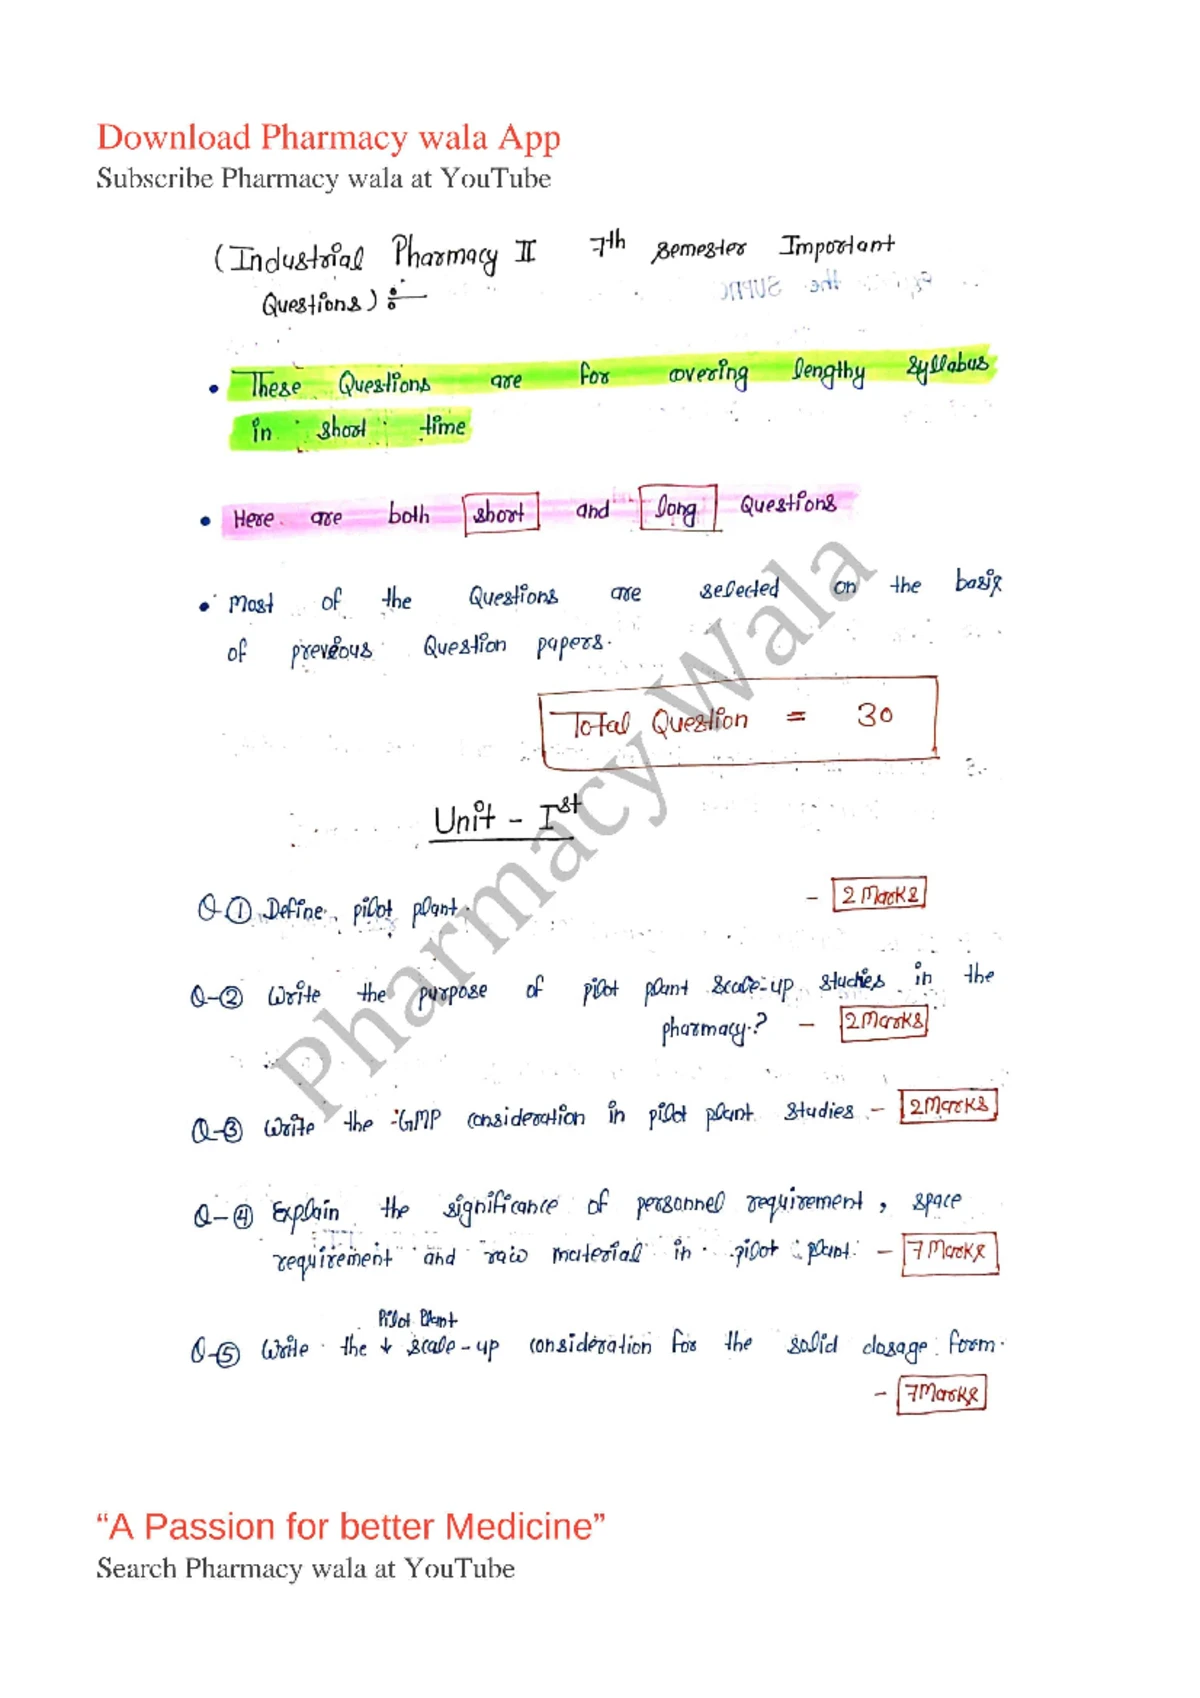 Download Pharmacy wala App
Subscribe Pharmacy wala at YouTube
(Industrial Pharmacy II 7th semester Important
the
Questions) :-
• These Questions are for covering lengthy syllabus
in short time
• Here are both short and long Questions
• Most of the Questions are selected on the basis
of previous Question papers.
Total Question = 30
Pharmacy Wala
Unit - Ist
Q-① Define pilot plant. - 2 Marks
Q-② Write the purpose of pilot plant scale-up studies in the
pharmacy.? - 2 Marks
Q-③ Write the GMP consideration in pilot plant studies - 2 Marks
Q-④ Explain the significance of personnel requirement, space
requirement and raw material in pilot plant. - 7 Marks
Pilot Plant
Q-⑤ Write the ↓ scale-up consideration for the solid dosage form.
- 7 Marks
“A Passion for better Medicine”
Search Pharmacy wala at YouTube